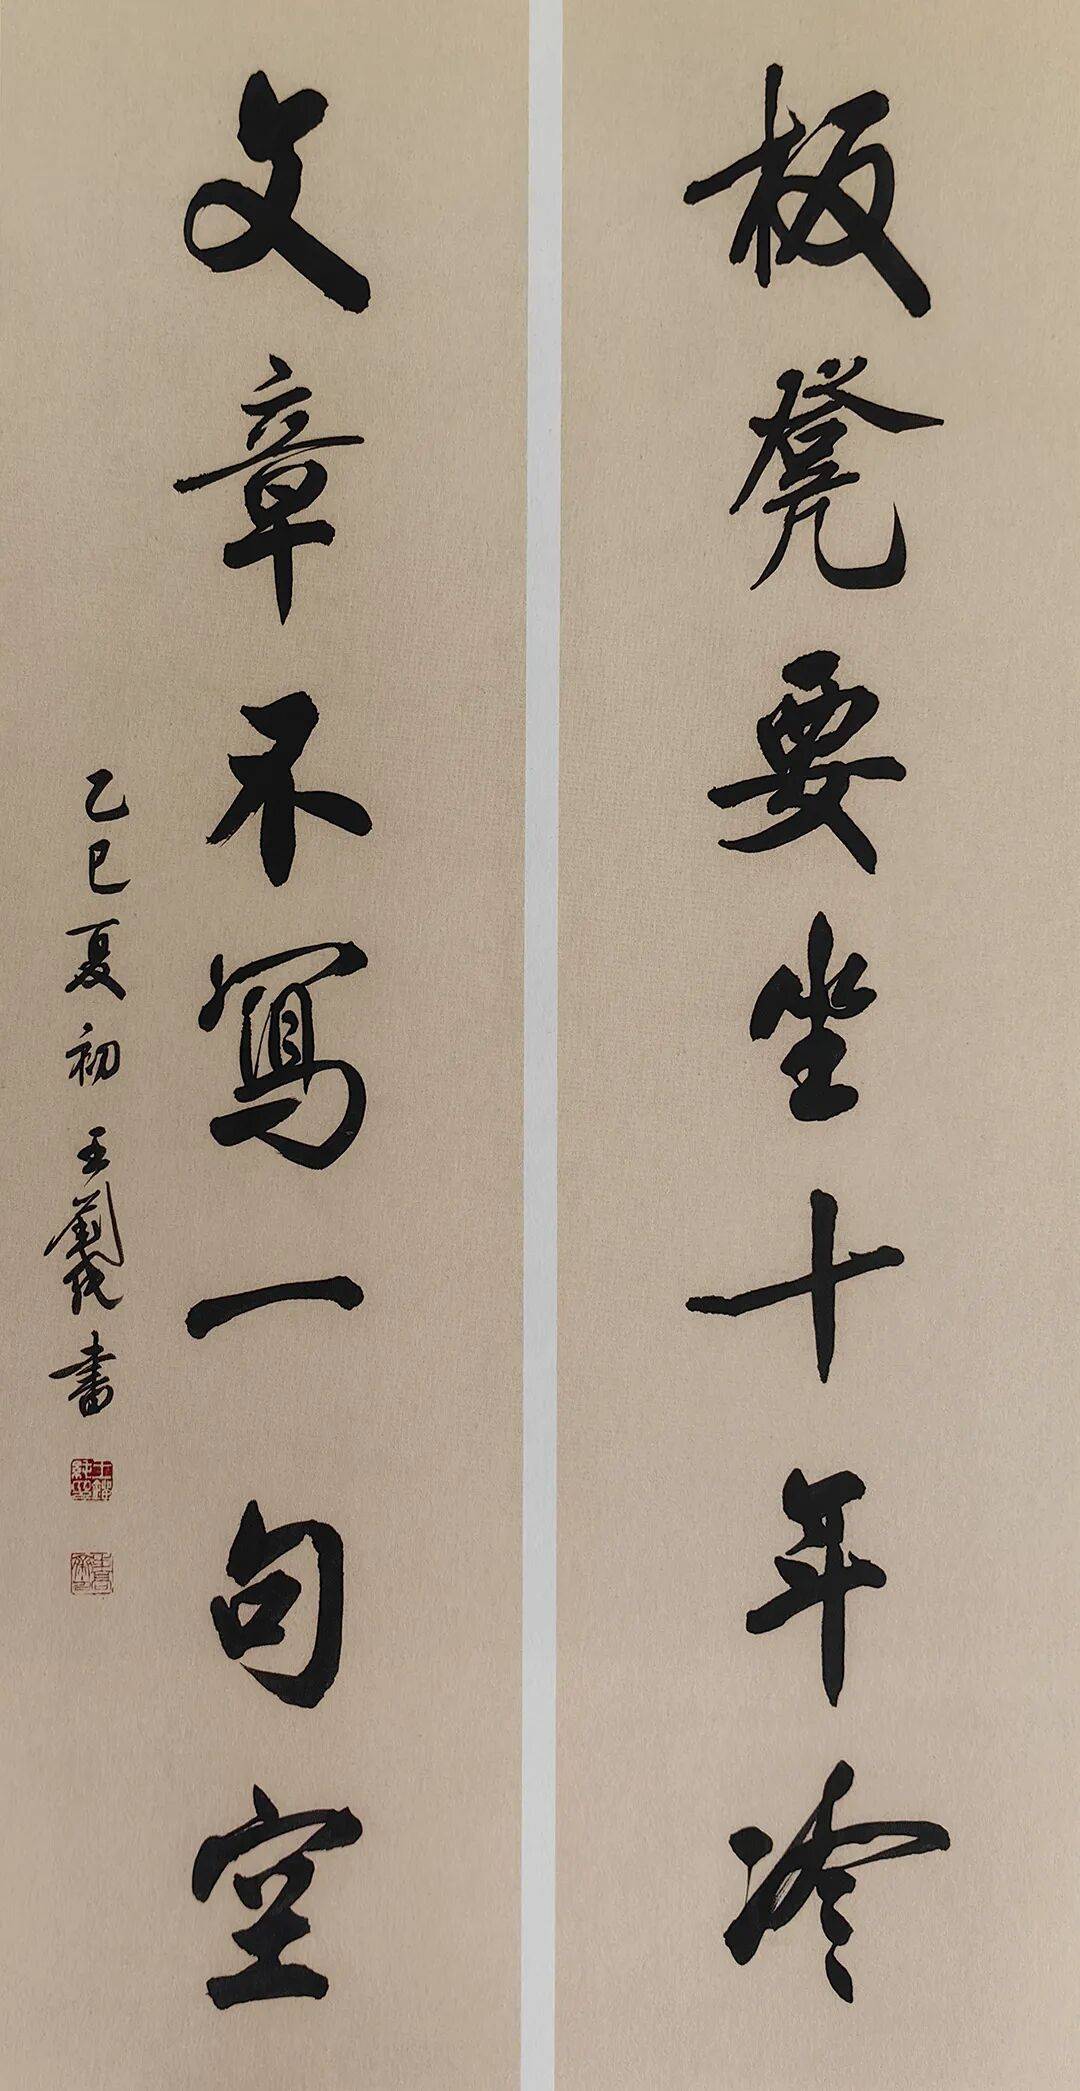 板凳要坐十年冷
文章不寫一句空
乙巳夏初王劍纯書